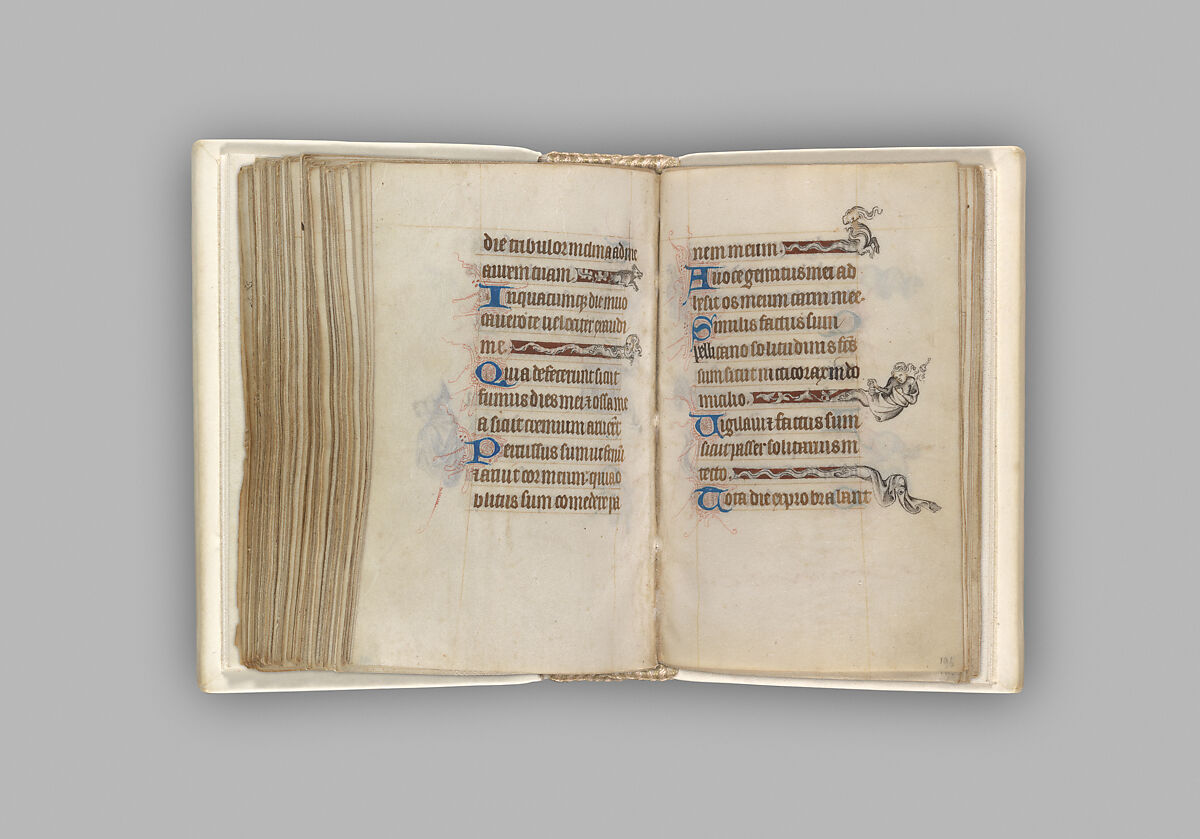 die tribulor inclina ad me
aurem tuam
In quacumq; die inuo
cauero te uelociter exaudi
me.
Quia defecerunt sicut
fumus dies mei ⁊ ossa me
a sicut cremium aruerūt
Percussus sum ut fenū
⁊ aruit cor meum: quia o
blitus sum comedere pa
nem meum.
A uoce gemitus mei ad
hesit os meum carni mee.
Similis factus sum
pellicano solitudinis fc̄s
sum sicut nicticorax in do
micilio.
Uigilaui ⁊ factus sum
sicut passer solitarius in
tecto.
Tota die exprobrabant